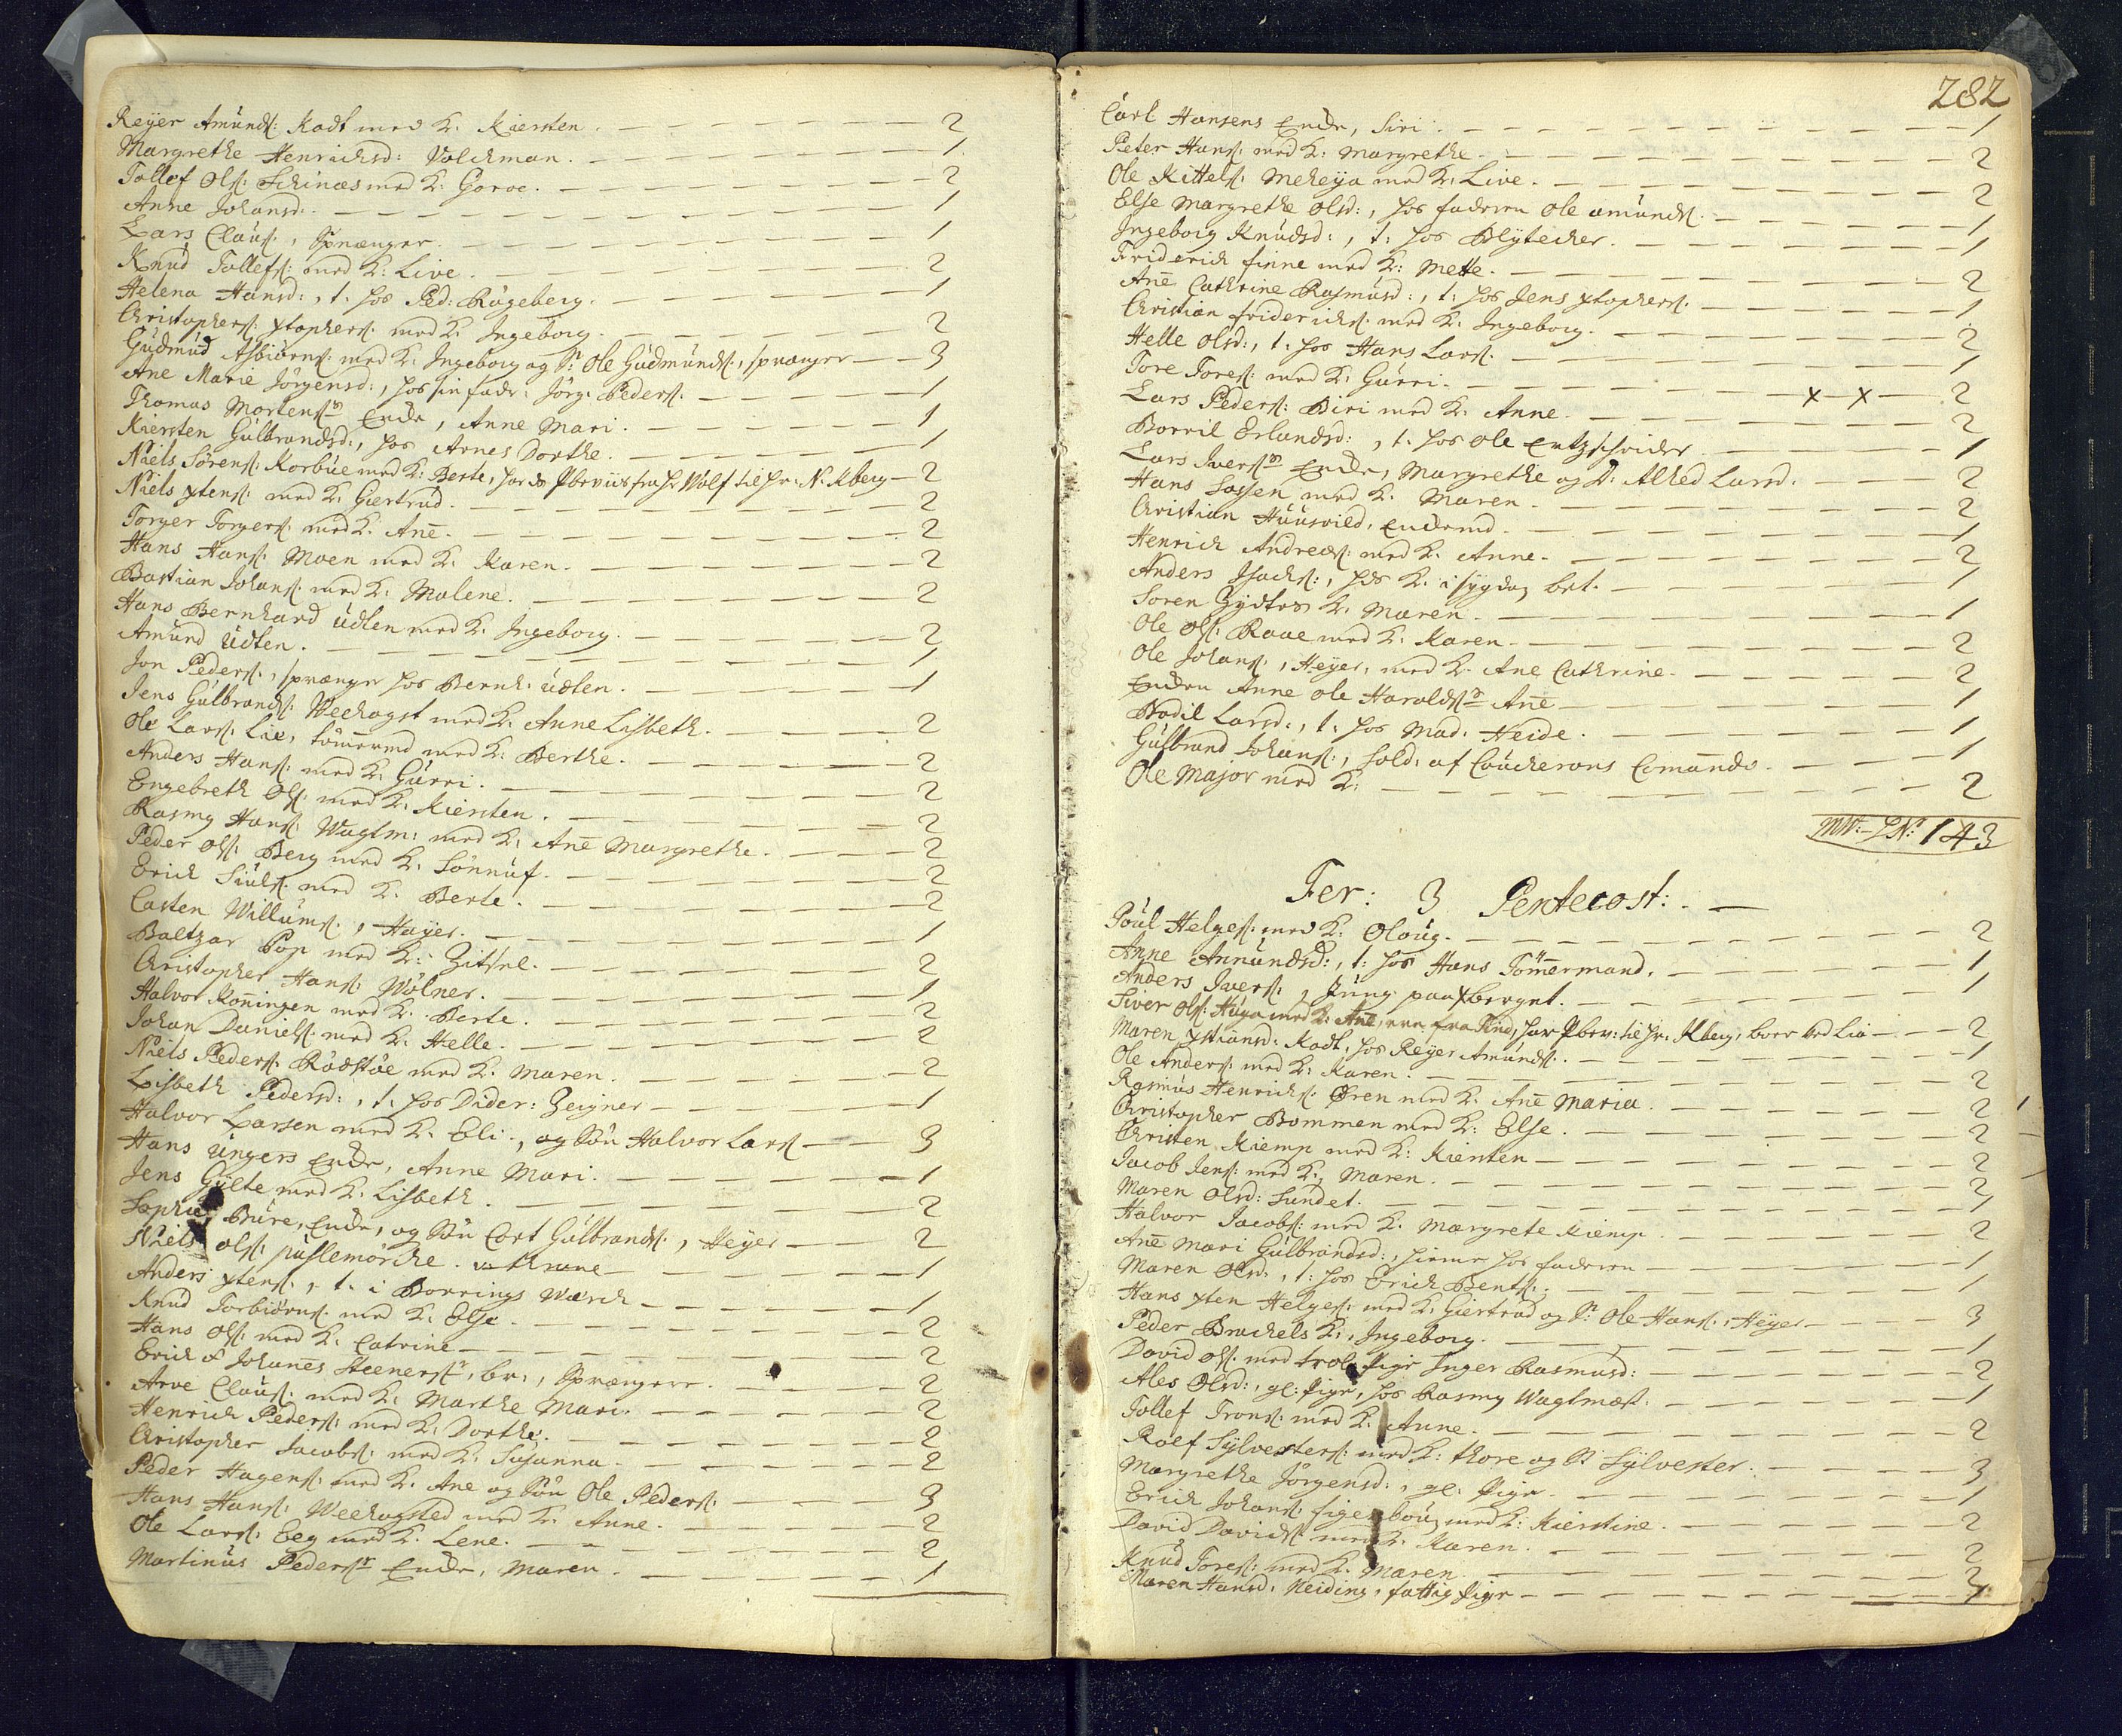 Reyer Amunds: Kadt med K. Kiersten. 2
Margrethe Henrichsd: Volckman. 1
Tollef Ols: Schinæs med K: Goroe. 2
Anne Johansd: 1
Lars Claus:, Sprænger. 1
Knud Tollefs: med K: Live. 2
Helena Hansd:, t. hos Ped: Rügeberg. 1
Christophers: xtophers: med K. Ingeborg. 2
Gudmud Asbiörns: med K: Ingeborg og Sn Ole Gudmunds:, sprænger 3
Ane Marie Jörgensd:, hos sin fader Jörg: Peders: 1
Thomas Mortensens Encke, Anne Mari. 1
Kiersten Gulbrandsd:, hos Arnes Dorthe. 1
Niels Sörens: Korbüe med K: Berte, fra Hr Wolf til Hr: N: Kberg 2
Niels xtens: med K: Giertrud. 2
Torger Torgers: med K. Ane. 2
Hans Hans: Moen med K. Karen. 2
Bastian Johans: med K: Malene. 2
Hans Bernhard Udlen med K. Ingeborg. 2
Amund Udlen. 1
Jon Peders:, sprænger hos Bernh. Udlen. 1
Jens Gulbrands: Weehagst med K: Anne Lisbeth. 2
Ole Lars: Lie, tömermd med K: Berthe. 2
Anders Hans: med K: Gurri. 2
Engebreth Ols: med K: Kiersten. 2
Rasmg Hans: Wagtm: med K: Ane Margrethe. 2
Peder Ols: Berg med K: Sönnuf. 2
Erich Siuls: med K. Berte. 2
Casten Willums:, Hayer. 1
Baltzar Pop med K: Zitsel. 2
Christopher Hans: Wölner. 1
Halvor Koningen med K. Berte. 2
Johan Daniels: med K. Helle. 2
Niels Peders: Rödstöe med K. Maren. 2
Lisbeth Pedersd:, t. hos Dider: Zeigner 1
Halvor Larsen med K. Eli, og Sön Halvor Lars: 3
Hans Ungers Encke, Anne Mari. 1
Jens Gylte med K. Lisbeth. 2
Sophie Büre, Encke, og Sön Cort Gulbrands:, Heyer 2
Niels Ols: puslemörche 1
Anders xtens:, t. i Borrings Wærch 1
Knud Torbiörns: med K. Else. 2
Hans Ols: med K: Catrine 2
Erich & Johanes Steenersr, br:, Sprængere. 2
Arve Claus: med K: Marthe Mari. 2
Henrich Peders: med K: Dorthe. 2
Christopher Jacobs: med K: Susanna. 2
Peder Hagens: med K. Ane og Sön Ole Peders: 3
Hans Hans: Weehagsted med K: Anne. 2
Ole Lars: Eeg med K. Lene. 2
Martinus Pedersr Encke, Maren. 1
282
Carl Hansens Encke, Siri. 1
Peter Hans: med K: Margrethe. 2
Ole Kittels: Meheya med K: Live. 2
Else Margrethe Olsd:, hos faderen Ole Amunds: 1
Ingeborg Knudsd:, t: hos Blytecker. 1
Friderich finne med K: Mette. 2
Ane Cathrine Rasmusd:, t: hos Jens xtophers: 1
Christian friderichs: med K: Ingeborg. 2
Helle Olsd:, t: hos Hans Lars: 1
Tore Tores: med K: Gurri. x x 2
Lars Peders: Biri med K: Anne. 2
Borril Erlandsd:, t. hos Ole Entzschrider 1
Lars Iversens Encke, Margrethe og D: Alhed Larsd. 2
Hans Sassen med K. Maren. 2
Christian Huusvild, Enckemd. 1
Henrich Andreæs: med K. Anne. 2
Anders Isachs:, hds K. i bet. 1
Soren Gydtes K. Maren. 1
Ole Ols: Raae med K. Karen. 2
Ole Johans:, Heyer, med K. Ane Cathrine. 2
Encken Anne Ole Haraldsr Ane 1
Bodil Larsd:, t. hos Mad. Heide. 1
Gulbrand Johans:, Sold: af Couckerons Comando. 1
Ole Major med K: 2
143
Fer: 3 Pentecost:
Poul Helges: med K. Oloug. 2
Anne Annundsd:, t: hos Hans Tömermand. 1
Anders Ivers:, Jung: paa xberget. 1
Siver Ols: Haga med K: Ane, fra Tind, til Hr. Kberg, boer ved Lia 2
Maren xstiansd: Kadt, hos Reyer Amunds: 1
Ole Anders: med K: Karen. 2
Rasmus Henrichs: Ören med K: Ane Maria. 2
Christopher Bommen med K: Else. 2
Christen Kiemp med K: Kiersten 2
Jacob Jens: med K: Maren. 2
Maren Olsd: Sundet. 1
Halvor Jacobs: med K. Margrete Kiemp. 2
Ane Mari Gulbrandsd:, hos faderen 1
Maren Olsd:, t: hos Erich Bents: 1
Hans xten Helges: med K: Giertrud og Sn: Ole Hans:, Heyer 3
Peder Brachels K:, Ingeborg. 1
David Ols: med trol: Pige Inger Rasmusd: 2
Ales Olsd:, gl: Pige, hos Rasmg Wagtmæst. 1
Tollef Trons: med K: Anne. 2
Rolf Sylvesters: med K: Thore og Sn Sylvester. 3
Margrethe Jörgensd:, gl: Pige. 1
Erich Johans: med K: Kierstine. 2
David Davids: med K. Karen. 2
Knud Tores: med K. Maren. 2
Maren Hansd: Neiding, fattig Pige 1